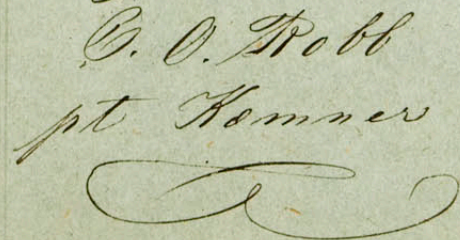 C. O. Robb
pt Kæmner